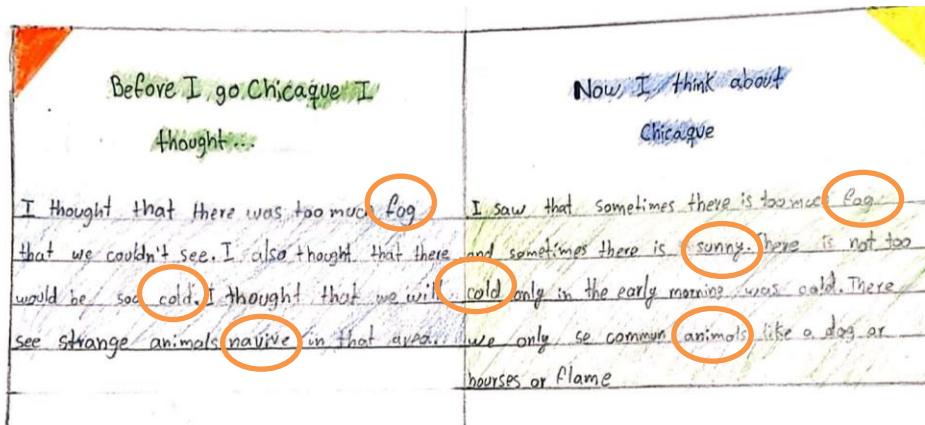 Before I go Chicaque I
thought...
I thought that there was too much fog
that we couldn't see. I also thought that there
would be soo cold. I thought that we will
see strange animals navive in that area.
Now, I think about
Chicaque
I saw that sometimes there is too much fog.
and sometimes there is sunny. There is not too
cold only in the early morning was cold. There
we only se commun animals like a dog or
hourses or flame